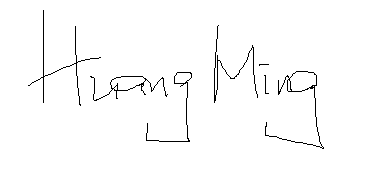 Huang Ming